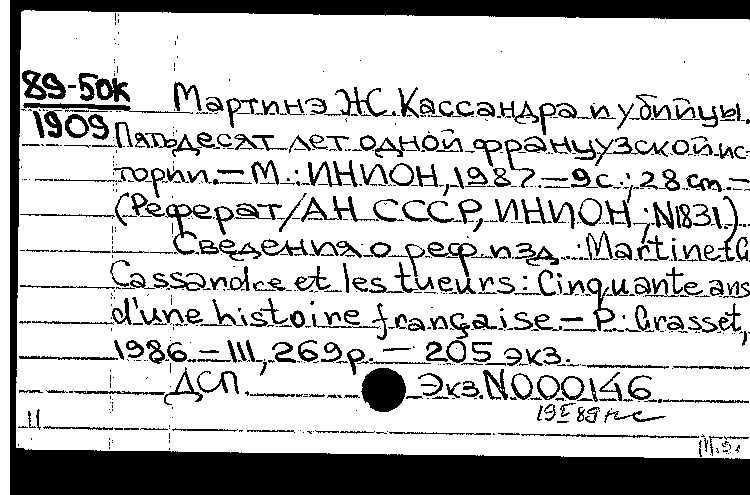 89-50к
1909
Мартинэ Ж. Кассандра и убийцы.
Пятьдесят лет одной французской ис-
тории. — М.: ИНИОН, 1987. — 9 с.; 28 cm. —
(Реферат/АН СССР, ИНИОН; N1831)
Сведения о реф. изд.: Martinet G
Cassandre et les tueurs: Cinquante ans
d'une histoire française — P.: Grasset,
1986. — III, 269 p. — 205 экз.
ДСП Экз. N000146
11